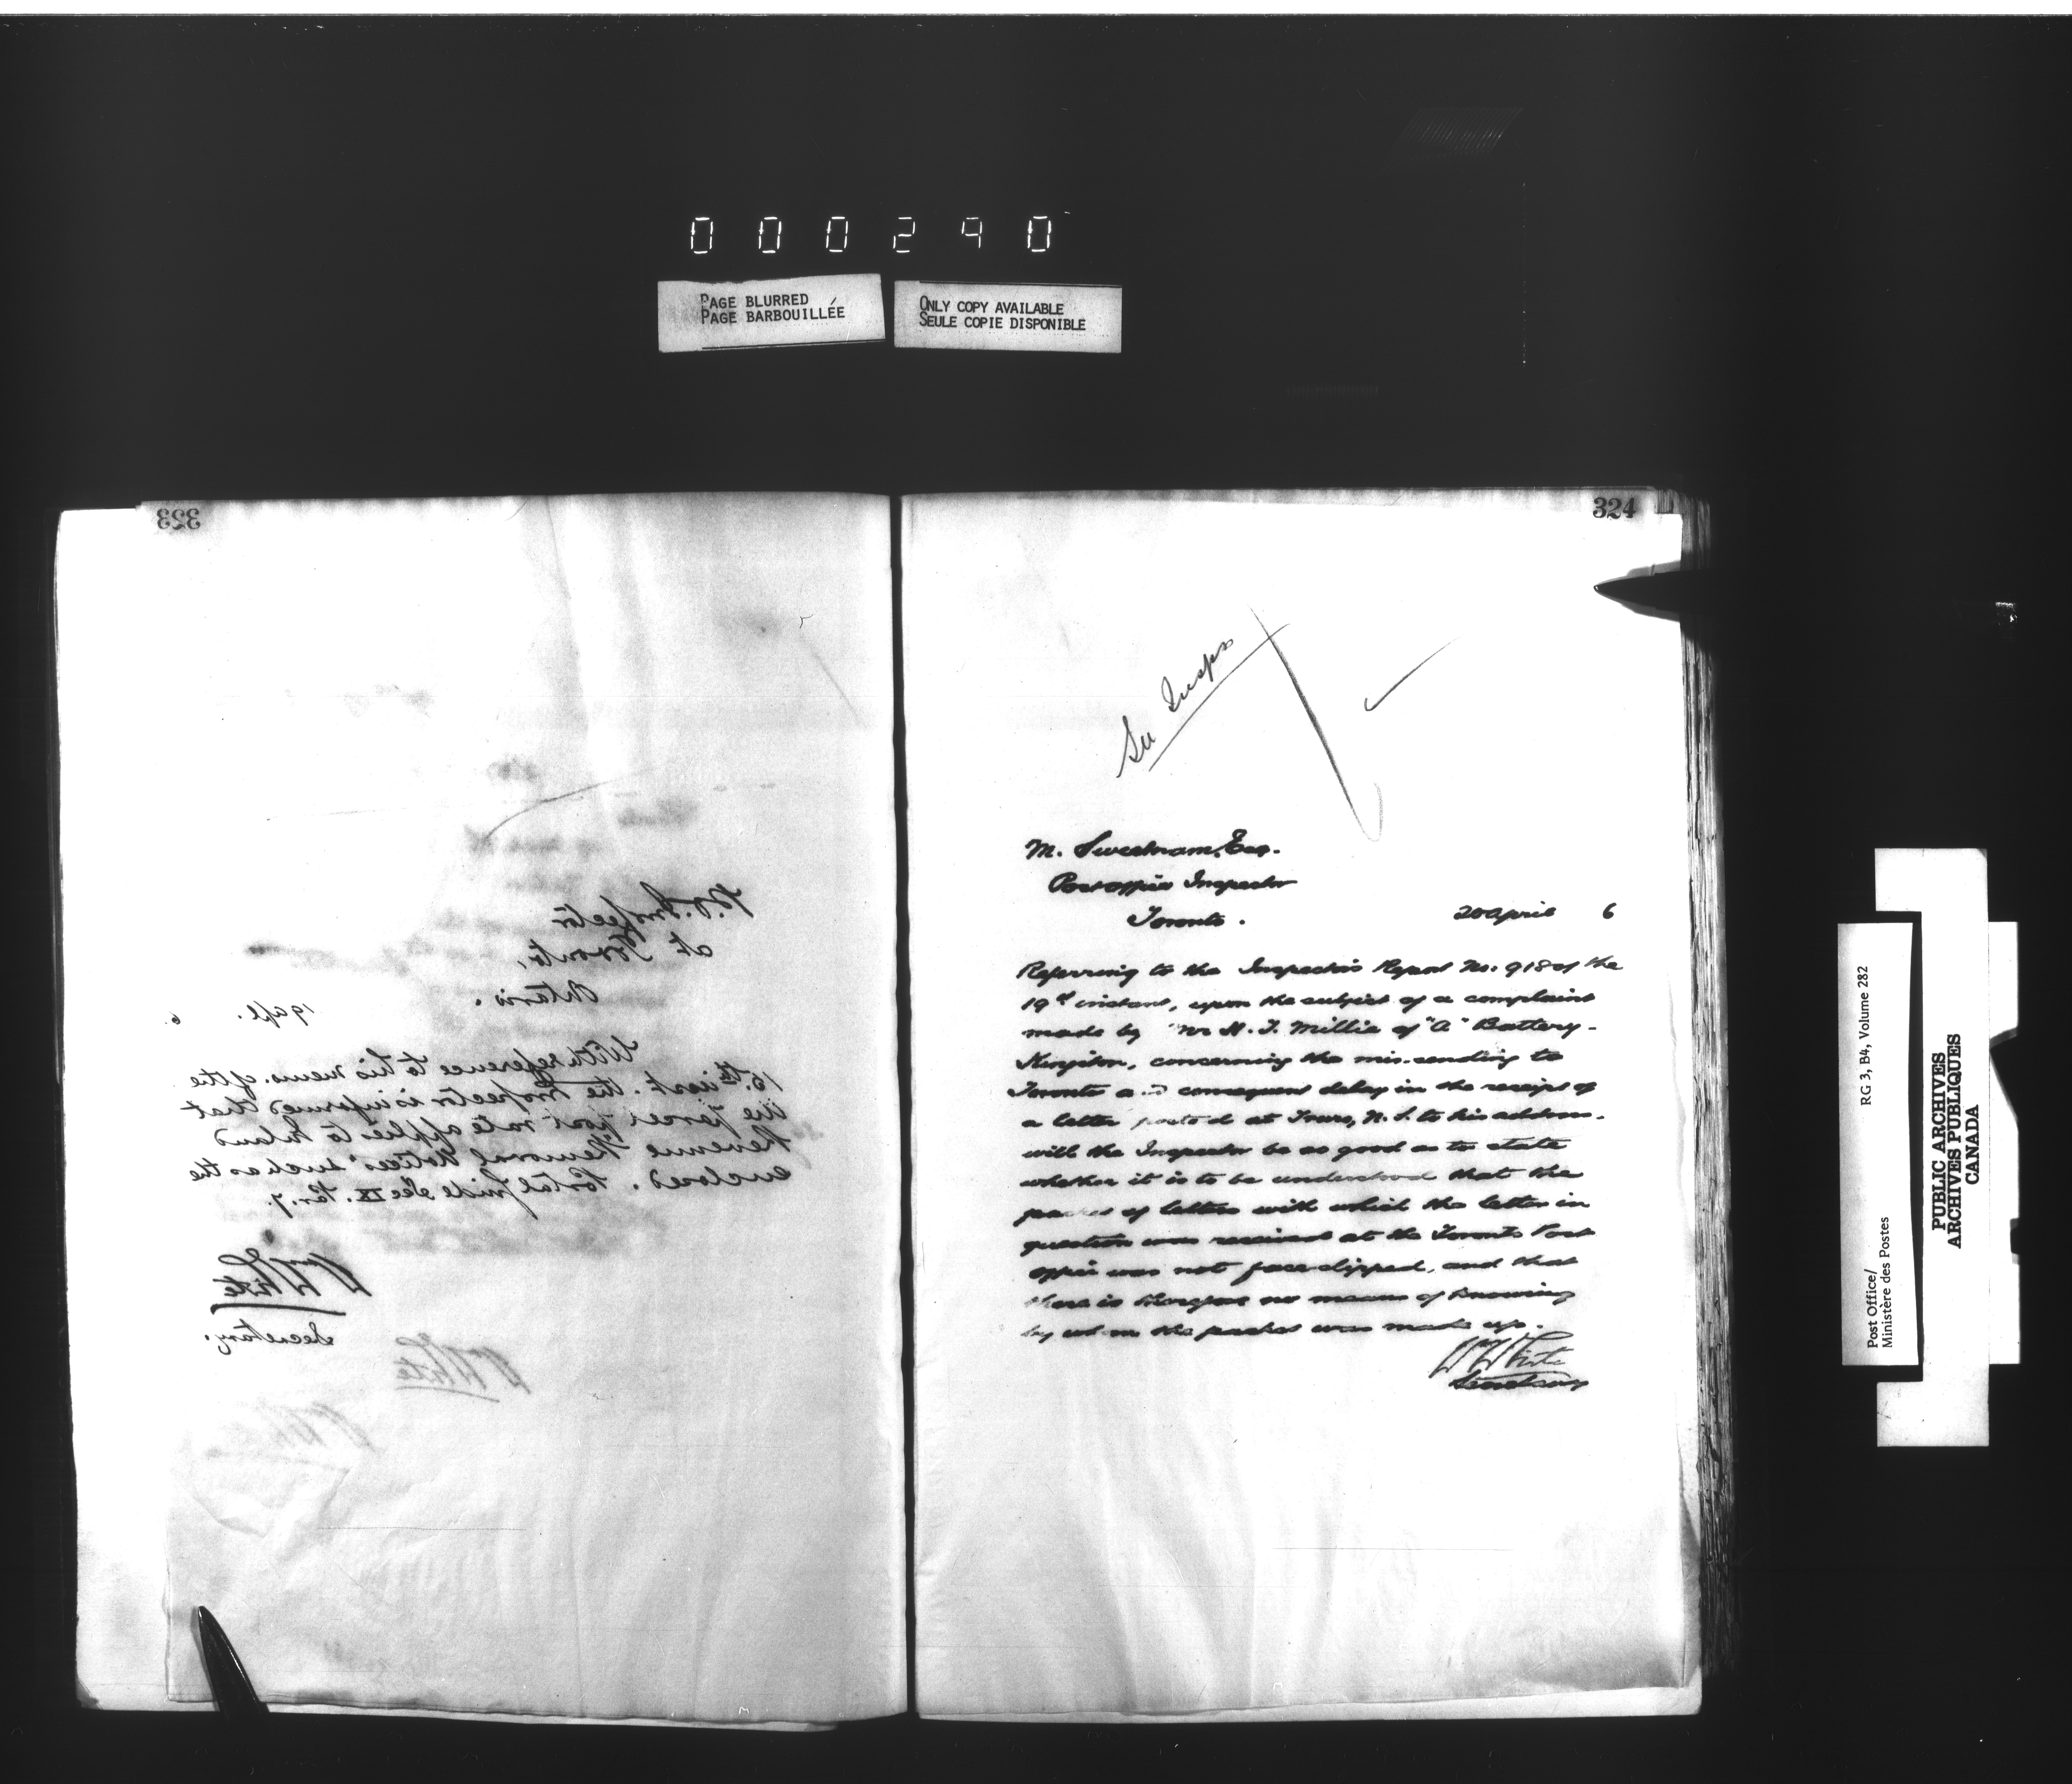 000290
PAGE BLURRED
PAGE BARBOUILLÉE
ONLY COPY AVAILABLE
SEULE COPIE DISPONIBLE
323
P.O. Inspector
at Toronto,
Ontario.
19 apl. 6.
With reference to his memo. of the
15th inst. the Inspector is informed that
the parcel post rate applies to Inland
Revenue "Removal Notices" such as the
enclosed. Postal Guide Sec IX. Par. 7.
Wm White
Secretary.
Wm White
324
Insps
M. Sweetnam, Esq.
Post office Inspector
Toronto.
20 April 6
Referring to the Inspector's Report No. 918 of the
19th instant, upon the subject of a complaint
made by Mr H. J. Millie of "A" Battery-
Kingston, concerning the mis-sending to
Toronto and consequent delay in the receipt of
a letter posted at Truro, N.S. to his address.
will the Inspector be as good as to state
whether it is to be understood that the
packet of letters with which the letter in
question was received at the Toronto Post
office was not face-slipped, and that
there is therefore no means of knowing
by whom the packet was made up.
Wm White
Secretary
RG 3, B4, Volume 282
Post Office/
Ministère des Postes
PUBLIC ARCHIVES
ARCHIVES PUBLIQUES
CANADA